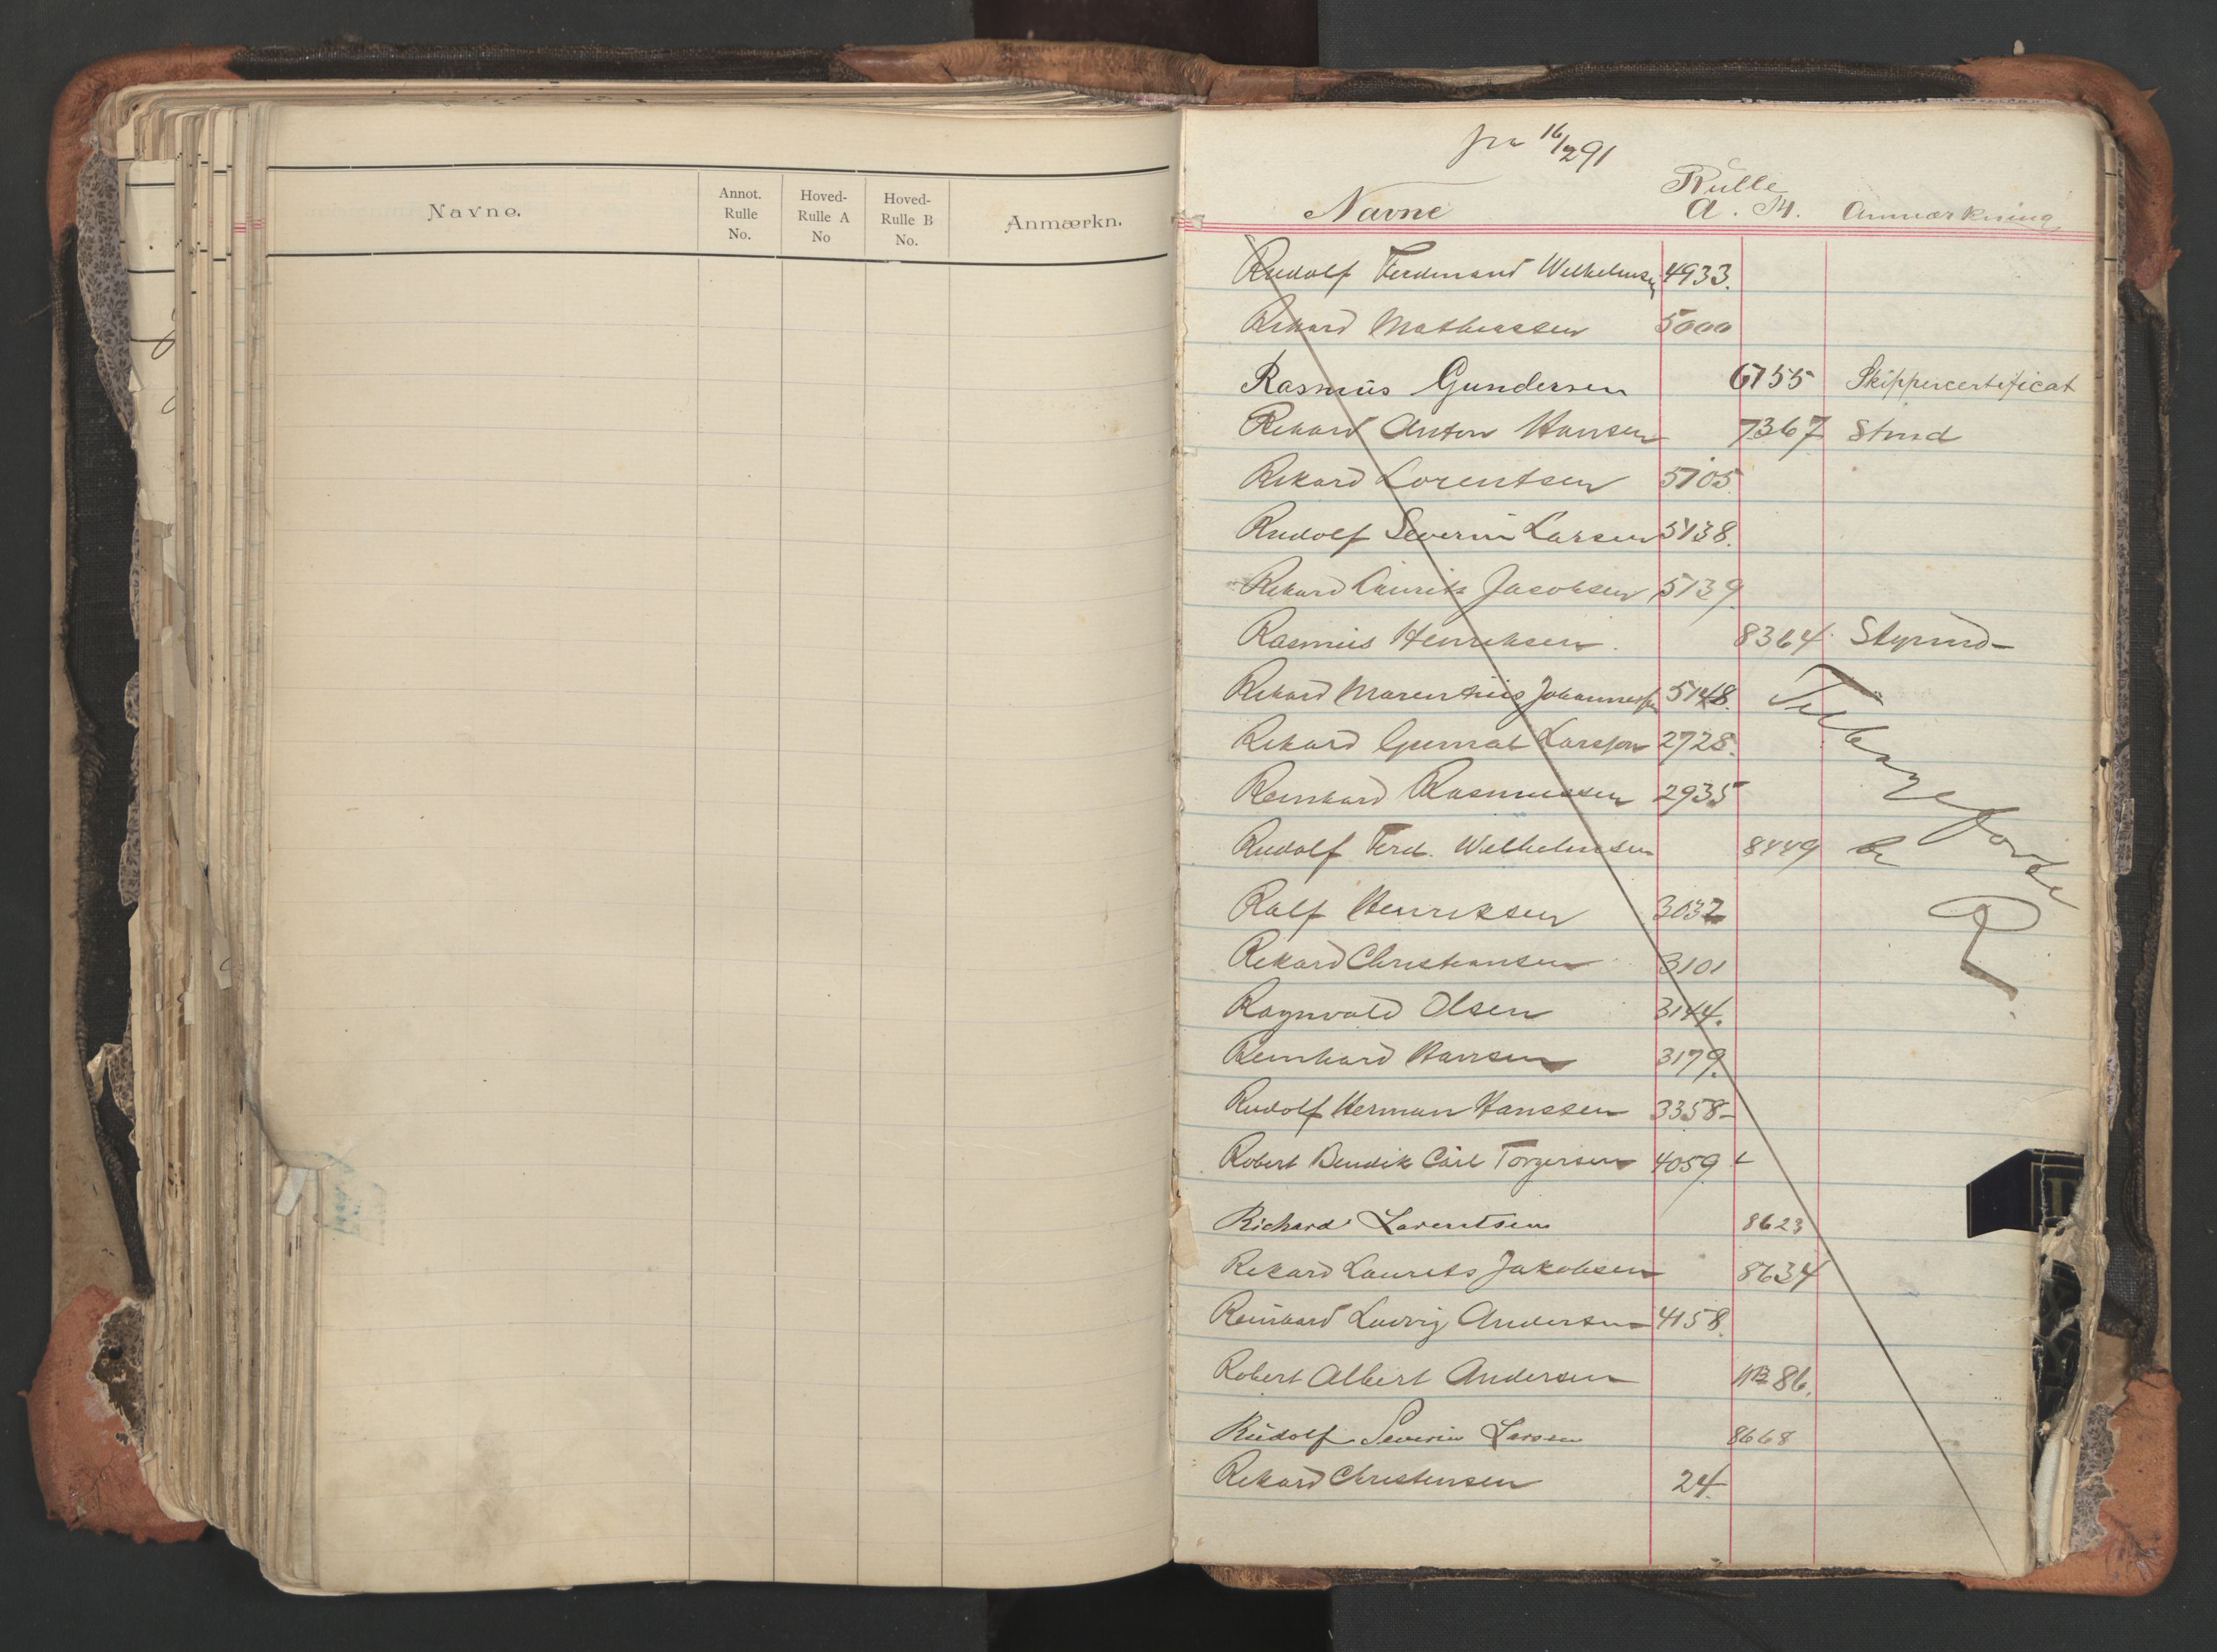 Navne.
Annot. Rulle No.
Hoved-Rulle A No
Hoved-Rulle B No.
Anmærkn.
fra 16/2 91
Rulle
Navne A. M. Anmærkning
Rudolf Ferdinand Wilhelmsen 4933.
Rikard Mathiassen 5000
Rasmus Gundersen 6755 Skippercertificat
Rikard Anton Hansen 7367 Strmd
Rikard Lorentsen 5105
Rudolf Severin Larsen 5138.
Rikard Laurits Jacobsen 5139
Rasmus Henriksen. 8364. Styrmd-
Rikard Marentius Johannessen 5148.
Rikard Larsson 2728.
Reinhard Rasmussen 2935
Rudolf Ferd. Wilhelmsen 8449
Ralf Henriksen 3032
Rikard Christiansen 3101
Ragnvald Olsen 3144.
Reinhard Hansen 3179.
Rudolf Herman Hanssen 3358-
Robert Bendik Carl Torgersen 4059
Richard Lorentsen 8623
Rikard Laurits Jakobsen 8634
Reinhard Ludvig Andersen 4158.
Robert Albert Andersen 86.
Rudolf Severin Larsen 8668
Rikard Christensen 24.
R